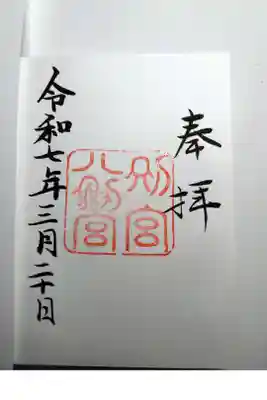 奉拝
別宮
八幡宮
令和七年三月二十日